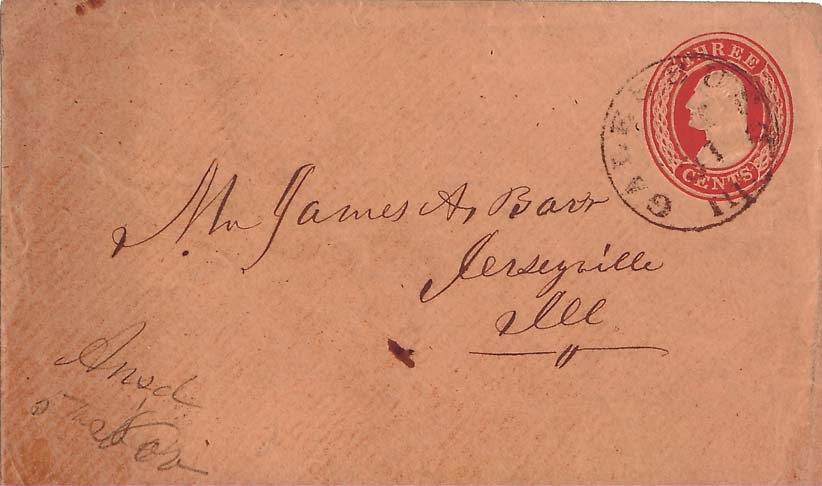 THREE
CENTS
GALESBURG
Ill
Mr James A, Barr
Jerseyville
Ill
Ansd